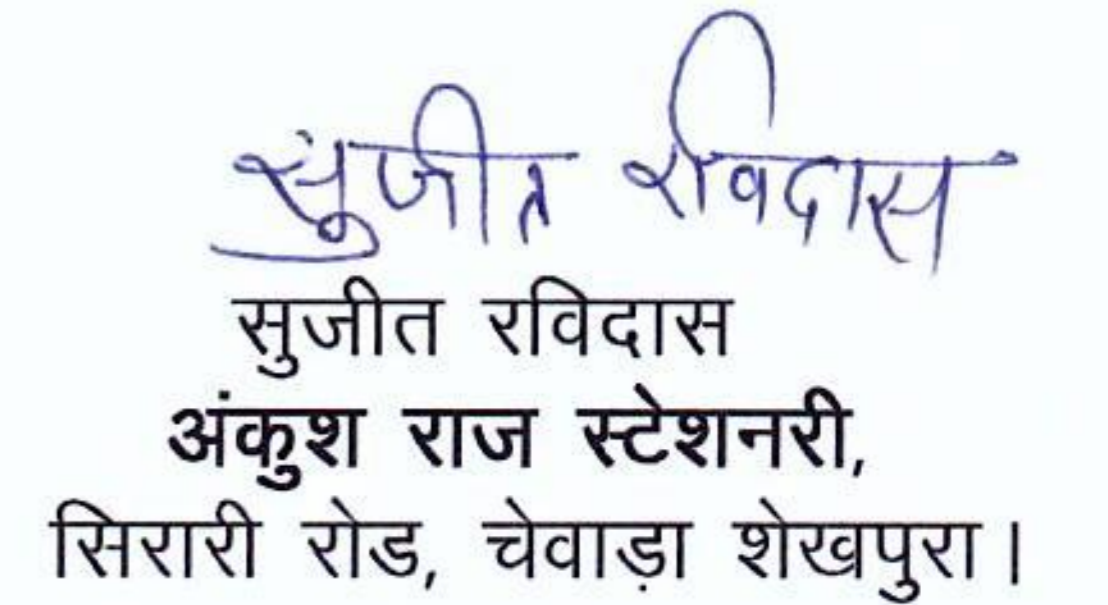 सुजीत रविदास
सुजीत रविदास
अंकुश राज स्टेशनरी,
सिरारी रोड, चेवाड़ा शेखपुरा।